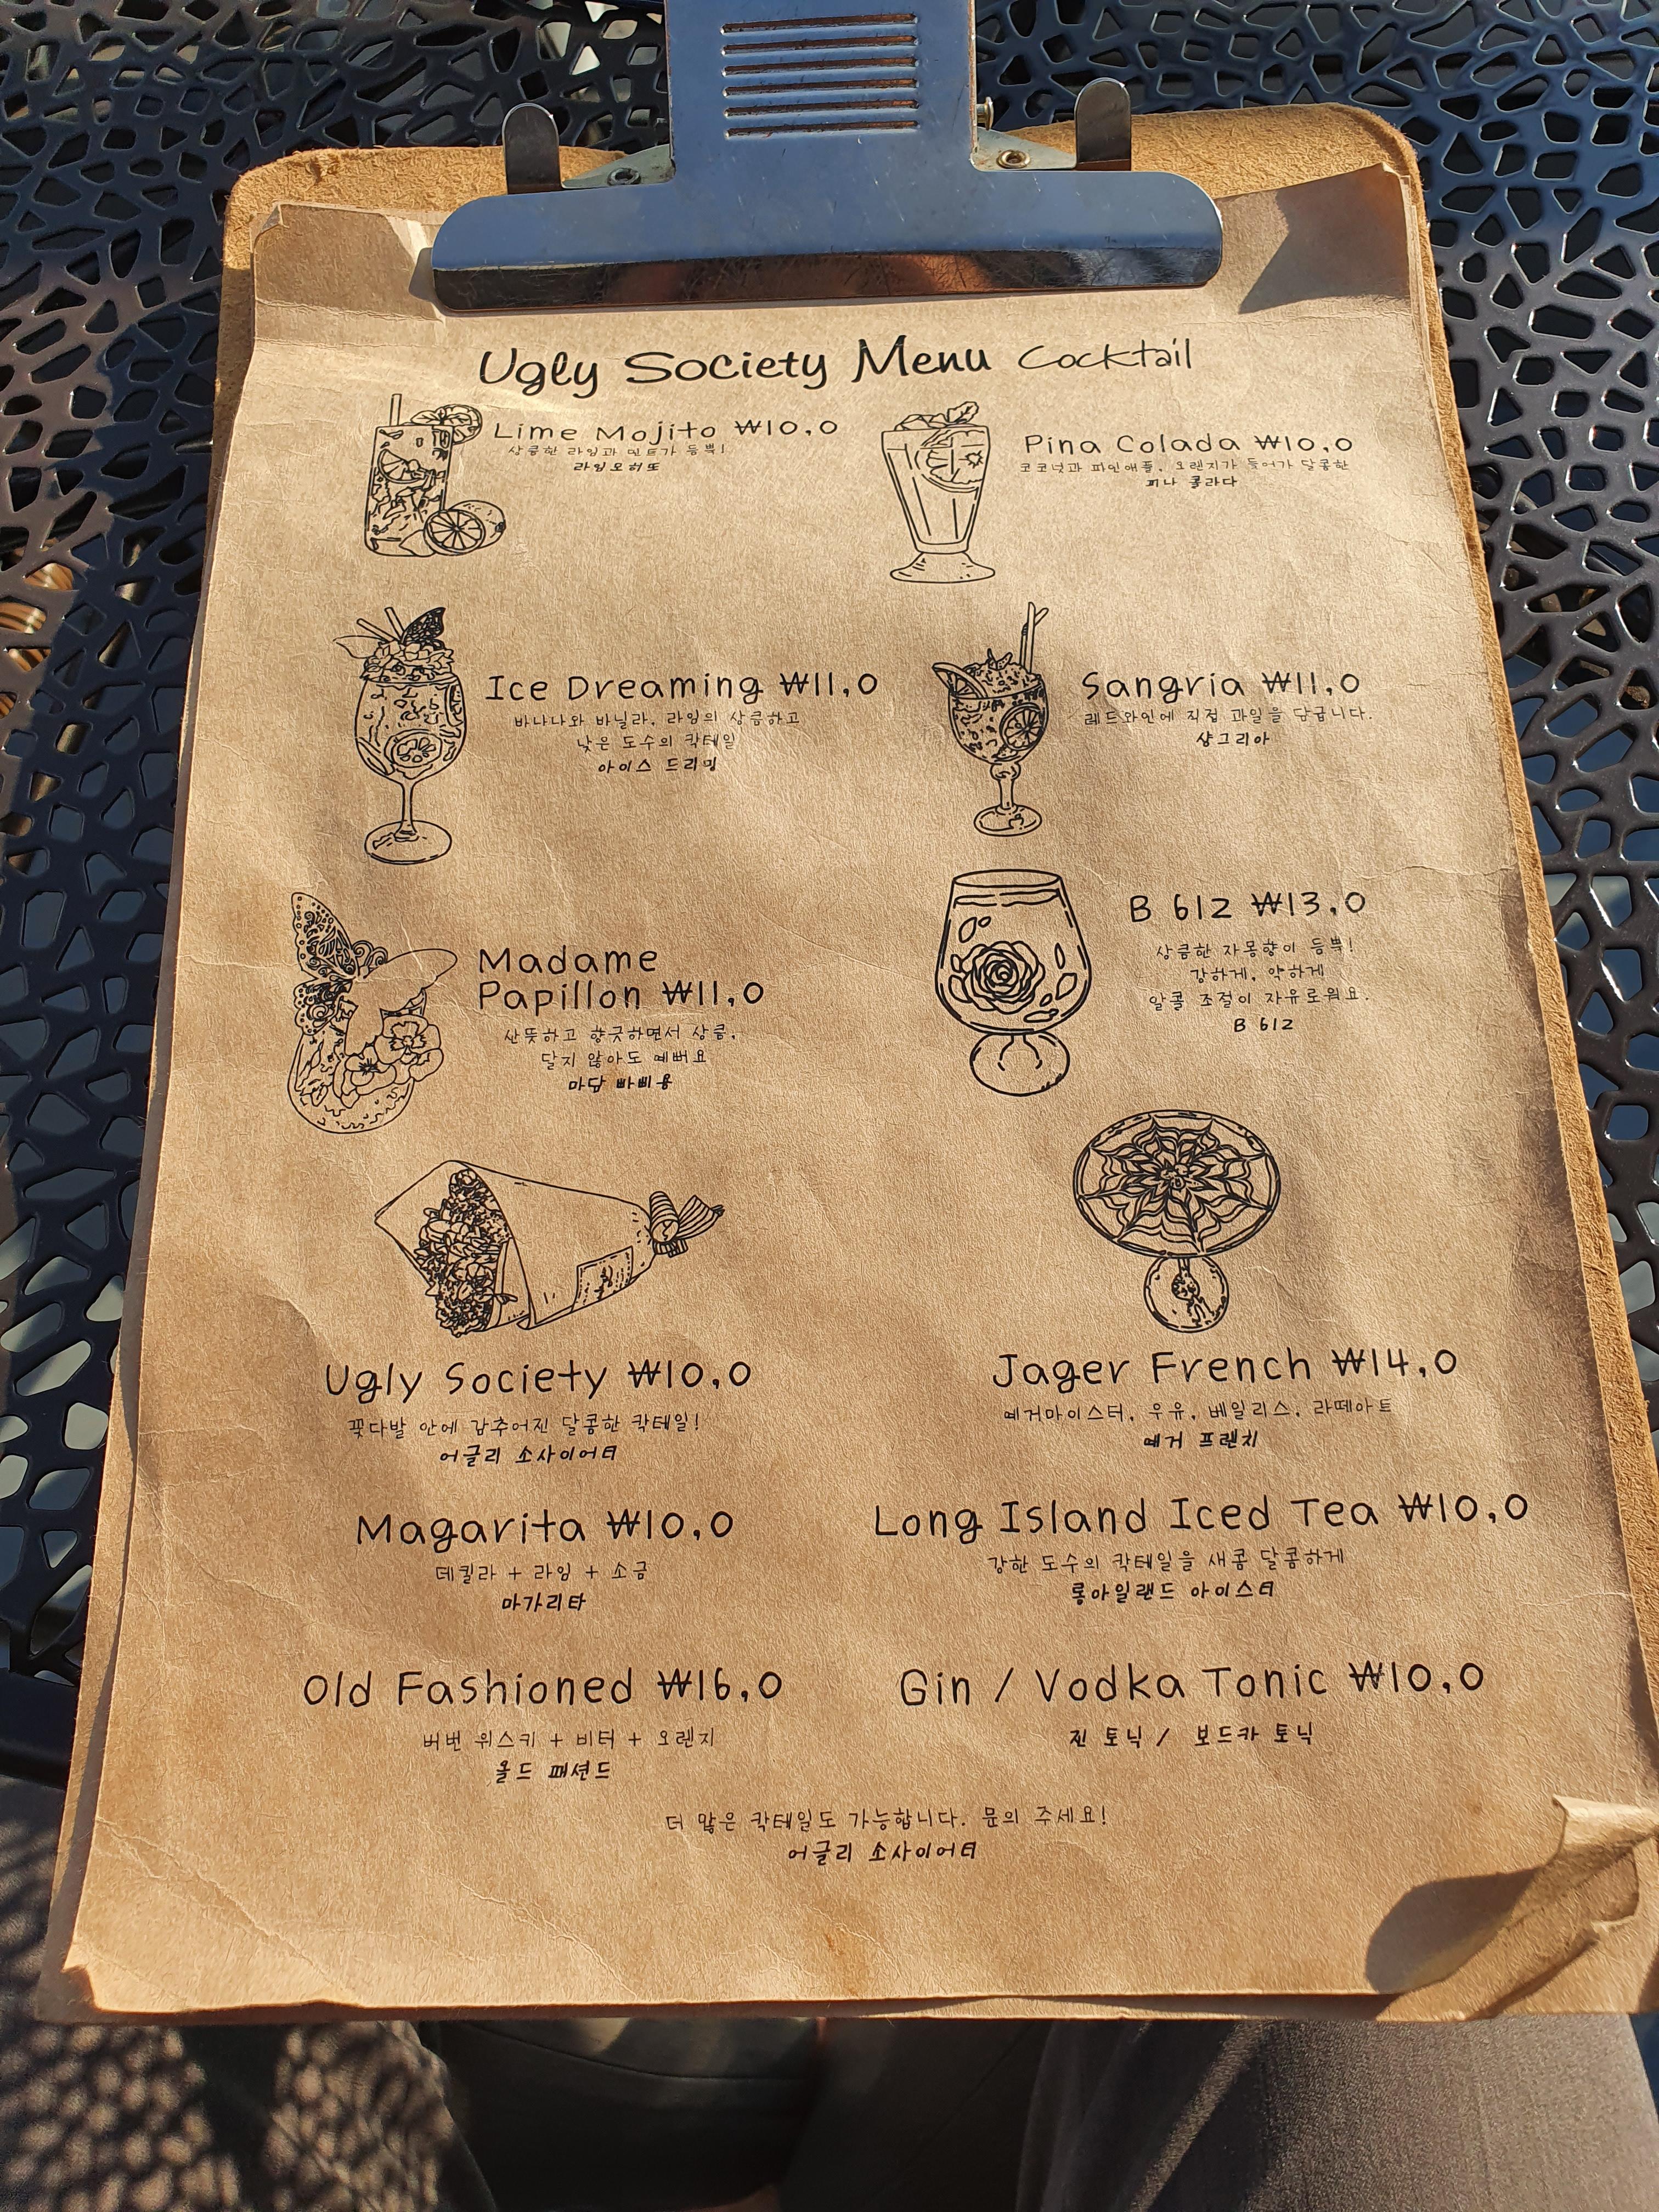 Ugly Society Menu Cocktail
Lime Mojito ₩10,0
상큼한 라임과 민트가 듬뿍!
라임모히또
Pina Colada ₩10,0
코코넛과 파인애플, 오렌지가 들어가 달콤한
피나 콜라다
Ice Dreaming ₩11,0
바나나와 바닐라, 라임의 상큼하고
낮은 도수의 칵테일
아이스 드리밍
Sangria ₩11,0
레드와인에 직접 과일을 담급니다.
샹그리아
Madame
Papillon ₩11,0
산뜻하고 향긋하면서 상큼,
달지 않아도 예뻐요
마담 빠삐용
B 612 ₩13,0
상큼한 자몽향이 듬뿍!
강하게, 약하게
알콜 조절이 자유로워요.
B 612
Ugly Society ₩10,0
꽃다발 안에 감추어진 달콤한 칵테일!
어글리 소사이어티
Jager French ₩14,0
예거마이스터, 우유, 베일리스, 라떼아트
예거 프렌치
Magarita ₩10,0
데킬라 + 라임 + 소금
마가리타
Long Island Iced Tea ₩10,0
강한 도수의 칵테일을 새콤 달콤하게
롱아일랜드 아이스티
Old Fashioned ₩16,0
버번 위스키 + 비터 + 오렌지
올드 패션드
Gin / Vodka Tonic ₩10,0
진 토닉 / 보드카 토닉
더 많은 칵테일도 가능합니다. 문의 주세요!
어글리 소사이어티